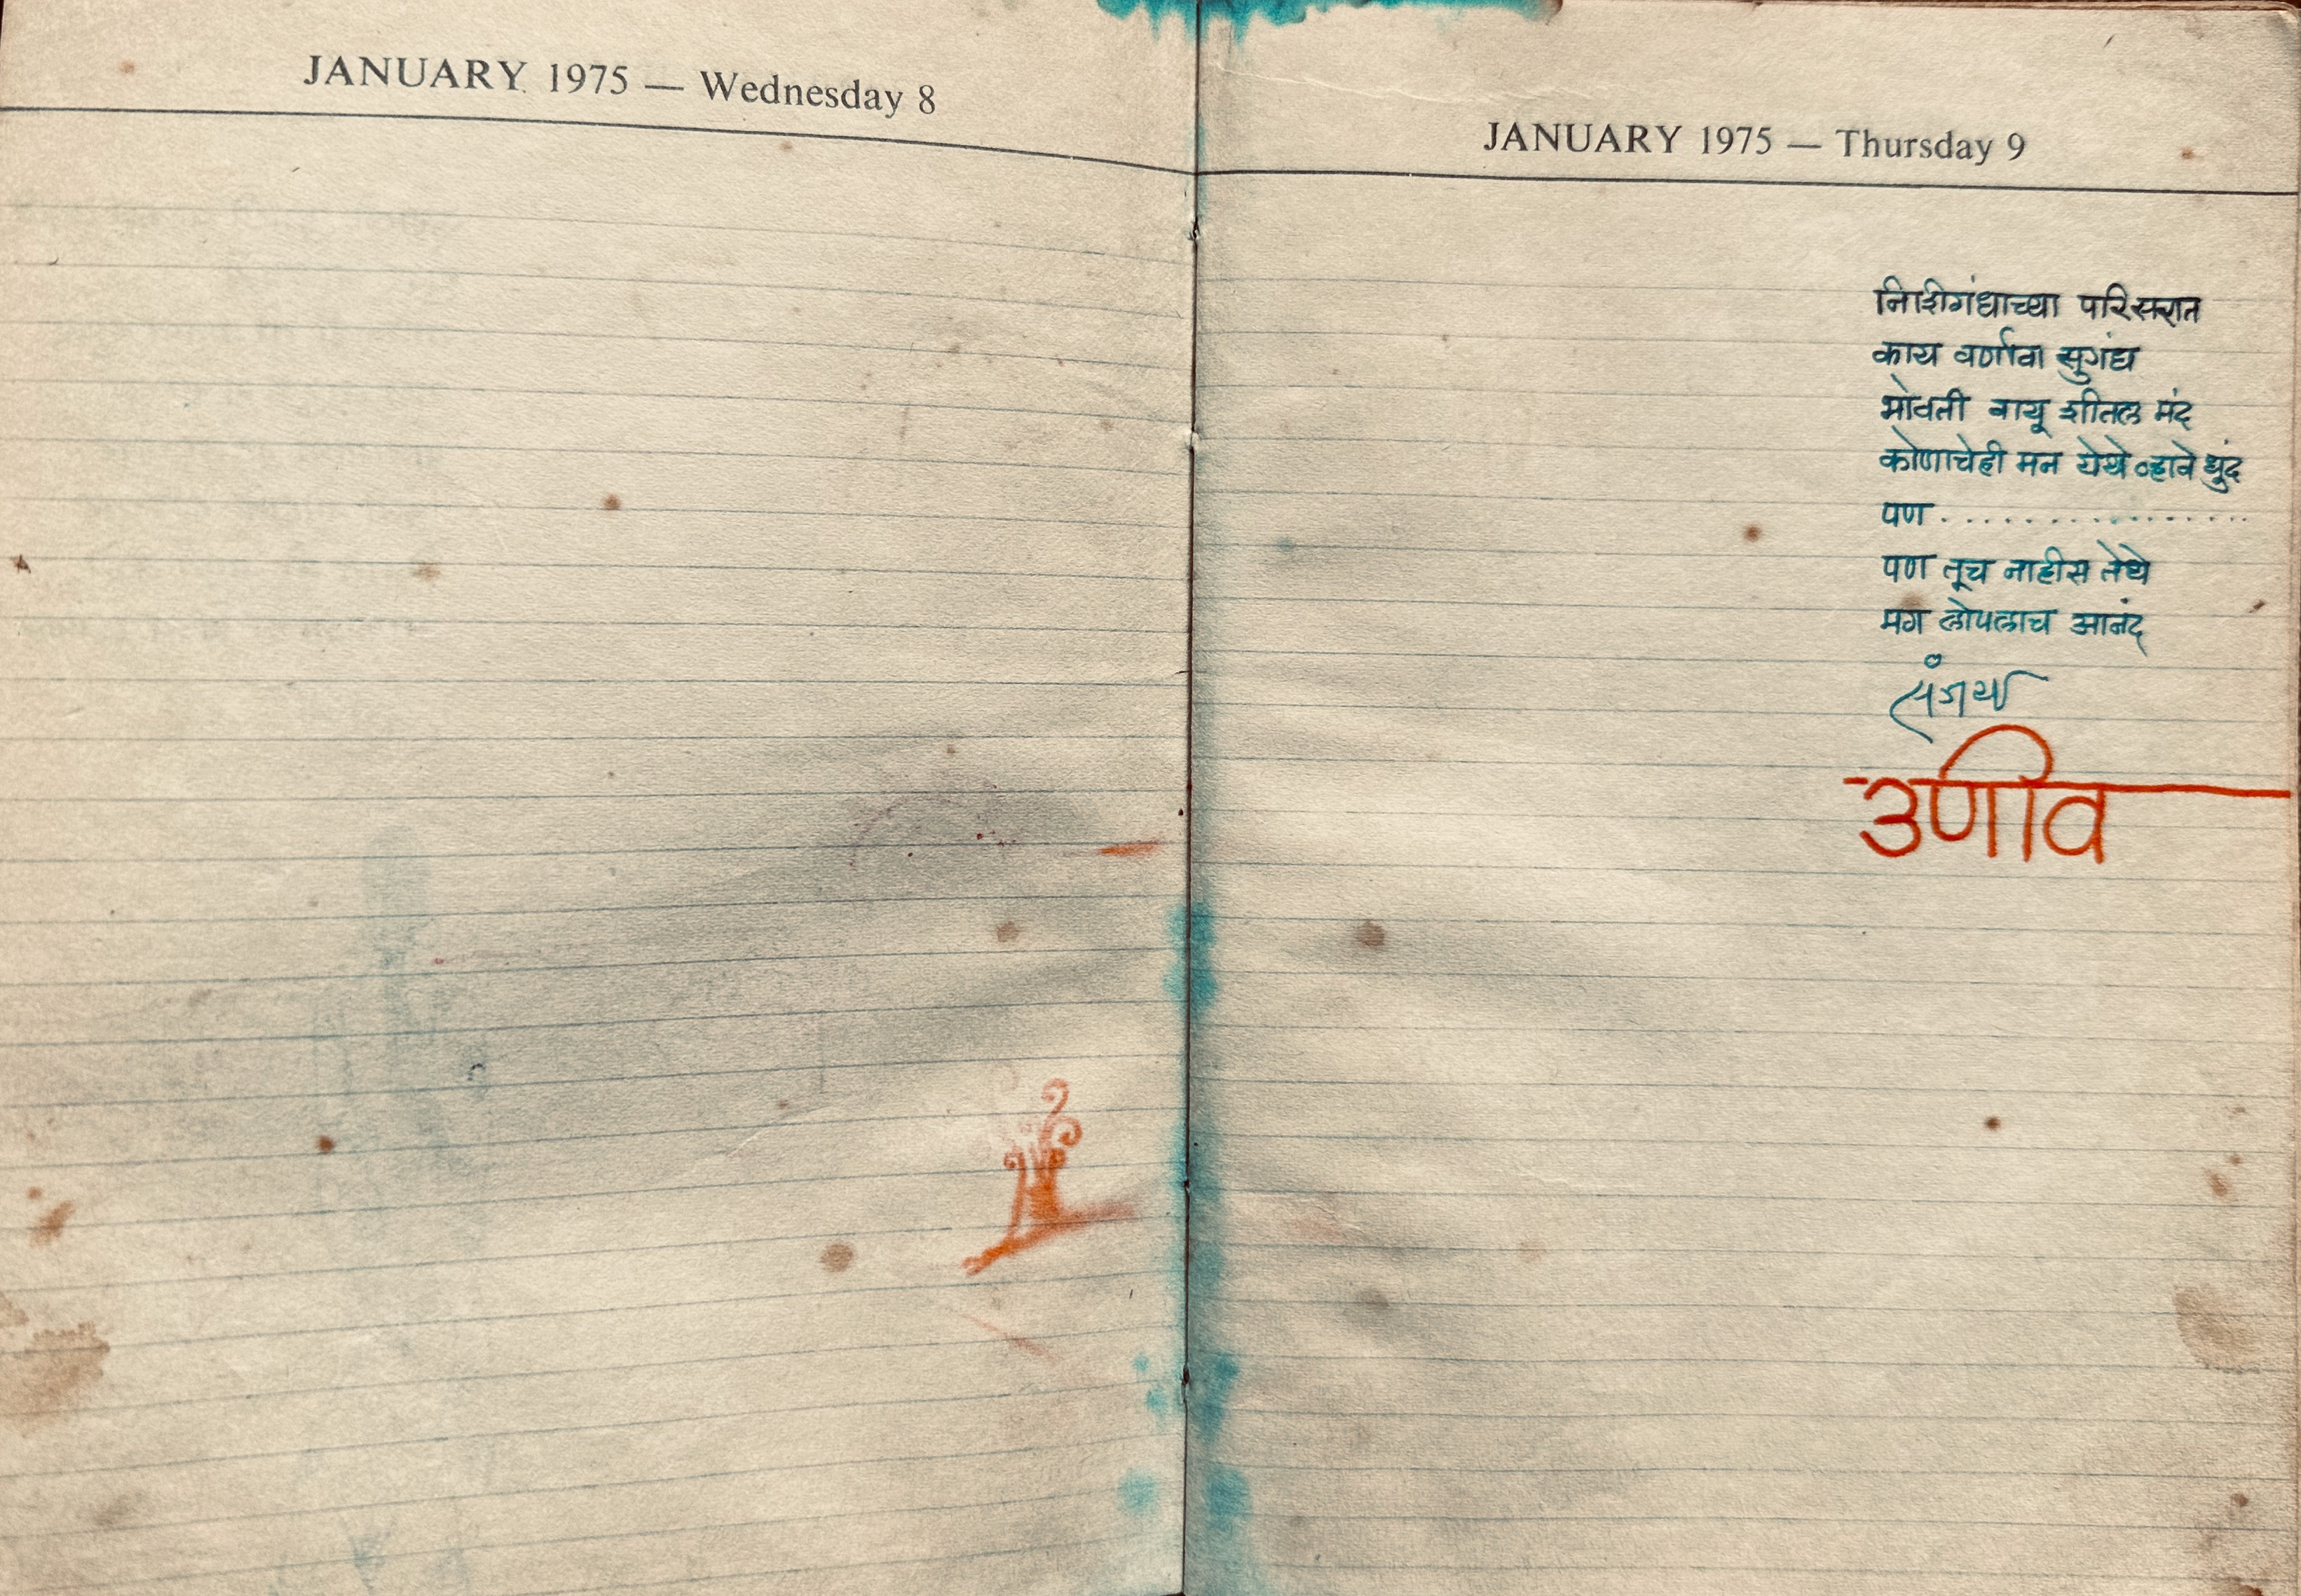 JANUARY 1975 — Wednesday 8
JANUARY 1975 — Thursday 9
निशीगंधाच्या परिसरात
काय वर्णावा सुगंध
भोवती वायू शीतल मंद
कोणाचेही मन येथे व्हावे धुंद
पण . . . . . . . . . . . . . . . . .
पण तूच नाहीस तेथे
मग लोपलाच आनंद
संजय
उणीव